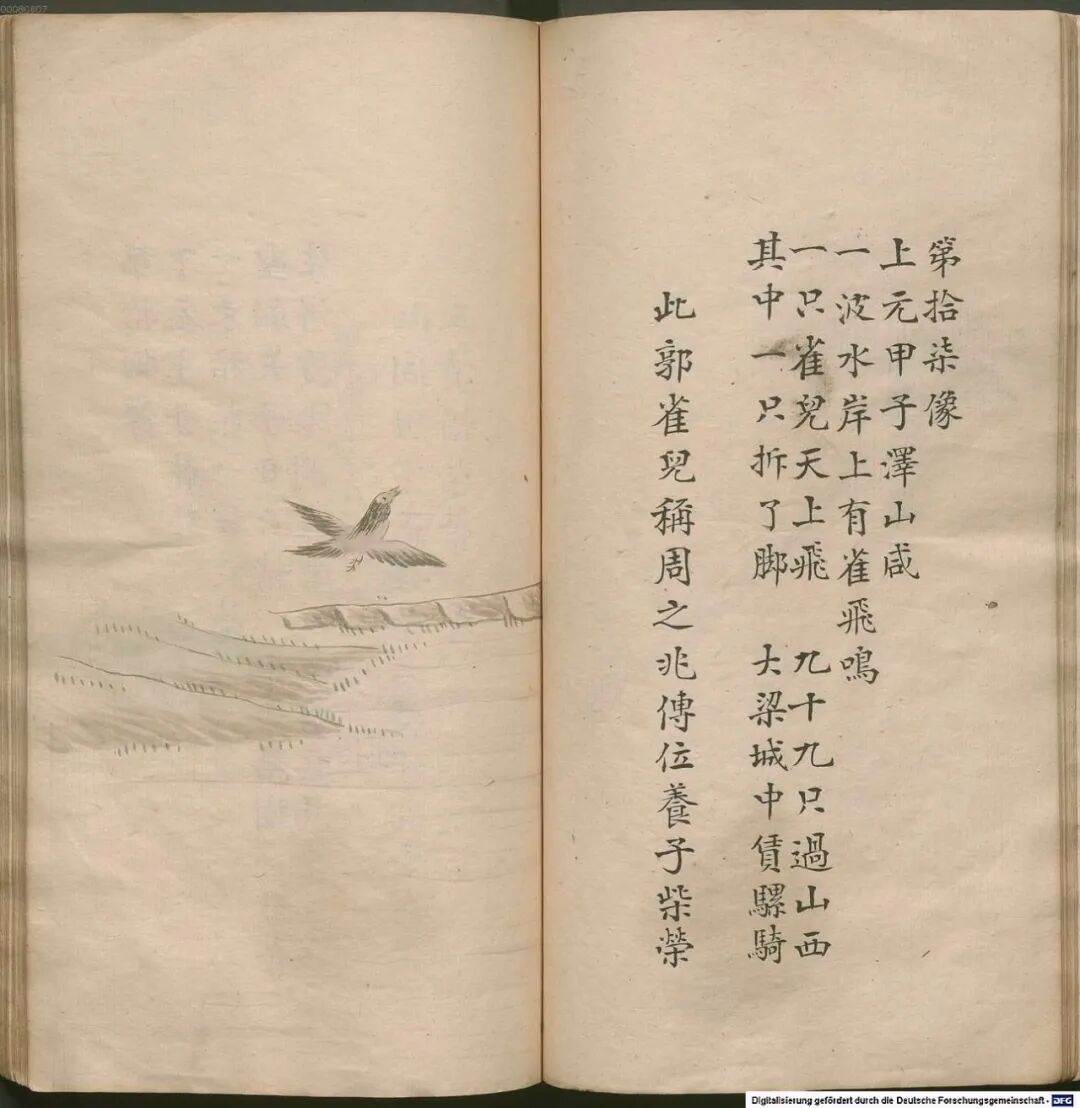 第拾柒像
上元甲子澤山咸
一波水岸上有雀飛鳴
一只雀兒天上飛 九十九只過山西
其中一只拆了脚 大梁城中賃騾騎
此郭雀兒稱周之兆傳位養子柴榮
00080807
Digitalisierung gefördert durch die Deutsche Forschungsgemeinschaft - DFG